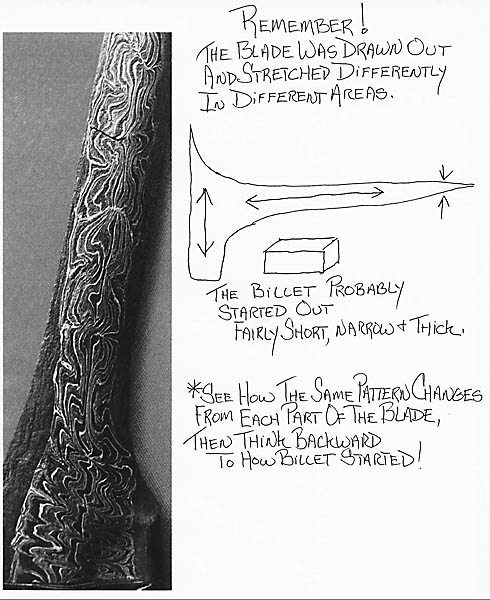 REMEMBER!
THE BLADE WAS DRAWN OUT
AND STRETCHED DIFFERENTLY
IN DIFFERENT AREAS.
THE BILLET PROBABLY
STARTED OUT
FAIRLY SHORT, NARROW & THICK.
*SEE HOW THE SAME PATTERN CHANGES
FROM EACH PART OF THE BLADE,
THEN THINK BACKWARD
TO HOW BILLET STARTED!